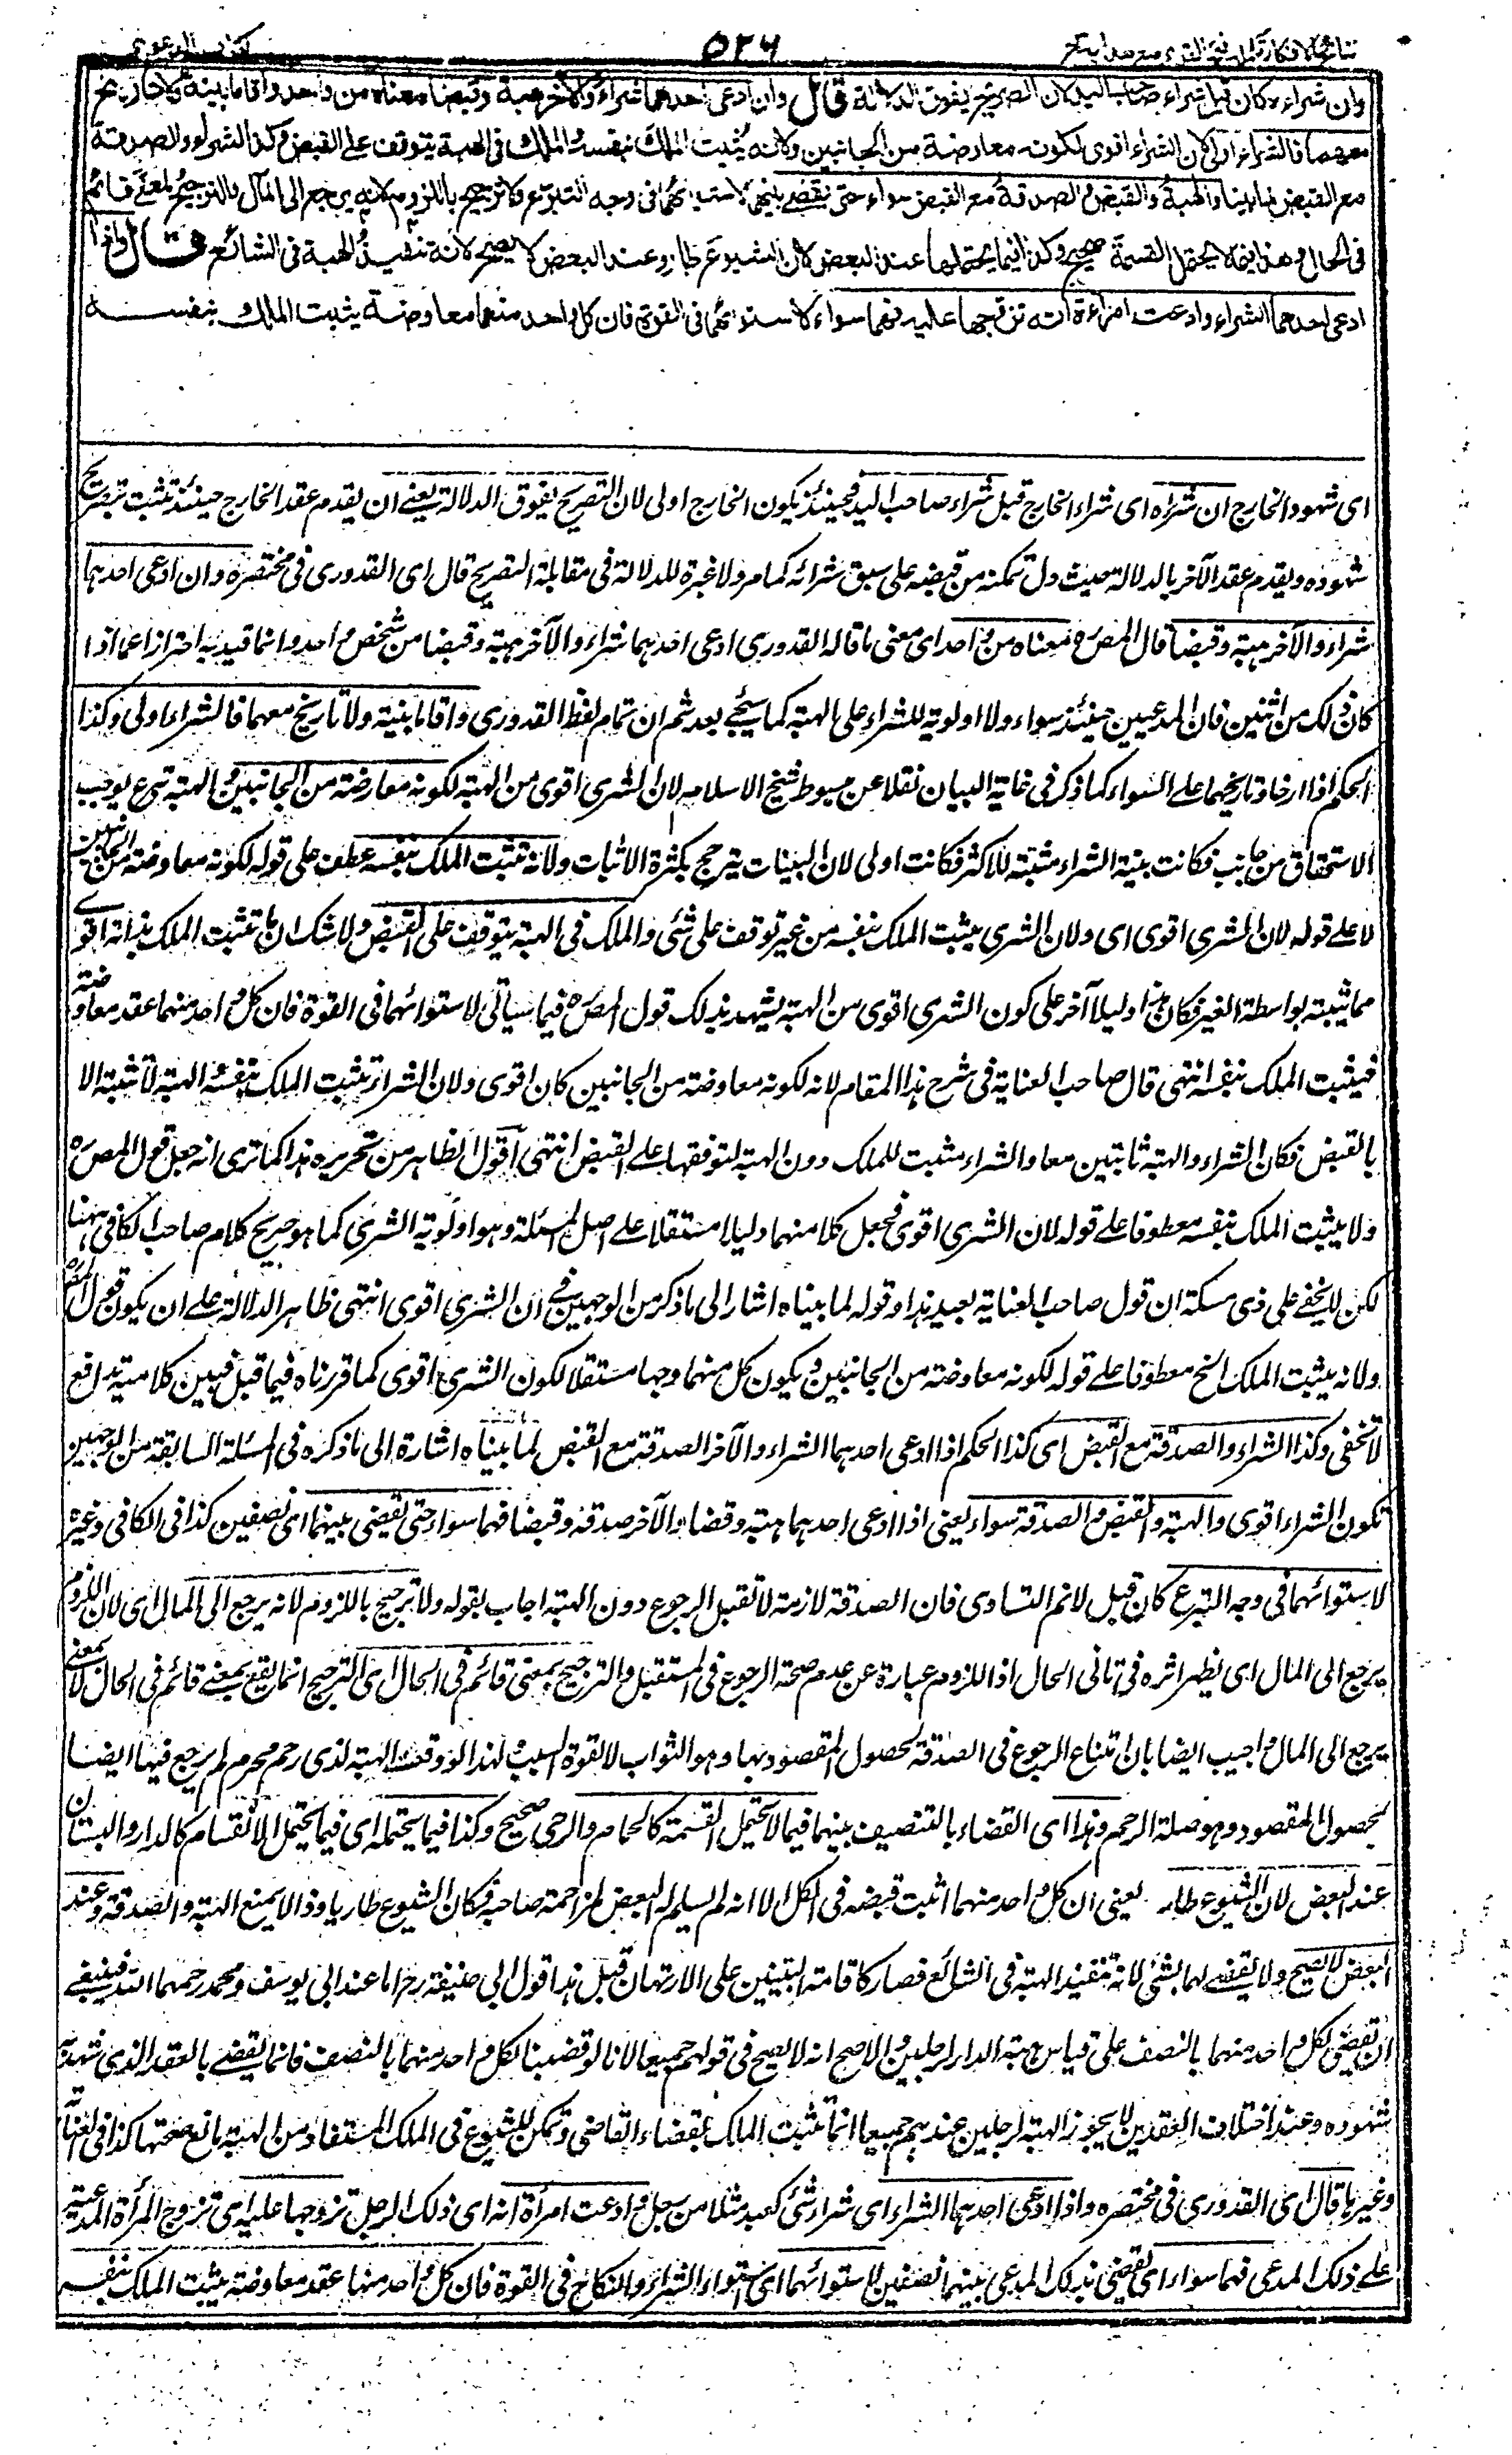 نتائج الافكار تكملة فتح القدير مع هداية ج
٥٢٦
كتاب الدعوى
وان شراءه كان قبل شراء صاحب اليد لان الصريح يفوق الدلالة قال وان ادعى احدهما شراء والآخر هبة وقبضا معناه من واحد واقاما بينة ولا تاريخ
معهما فالشراء اولى لان الشراء اقوى لكونه معاوضة من الجانبين ولانه يثبت الملك بنفسه والملك فى الهبة يتوقف على القبض وكذا الشراء والصدقة
مع القبض لما بينا والهبة والقبض والصدقة مع القبض سواء حتى يقضى بينهما لاستوائهما فى وجه التبرع ولا ترجيح باللزوم لانه يرجع الى المآل والترجيح بمعنى قائم
فى الحال وهذا فيما لا يحتمل القسمة صحيح وكذا فيما يحتملها عند البعض لان الشيوع طارٍ وعند البعض لا يصح لانه تنفيذ الهبة فى الشائع قال واذا
ادعى احدهما الشراء وادعت امراءة انه تزوجها عليه فهما سواء لاستوائهما فى القوة فان كل واحد منهما معاوضة يثبت الملك بنفسه
اى شهود الخارج ان شراءه اى شراء الخارج قبل شراء صاحب اليد فحينئذ يكون الخارج اولى لان التصريح يفوق الدلالة يعنى ان يقدم عقد الخارج حينئذ تثبت بتصريح
شهوده ويقدم عقد الآخر بالدلالة حيث دل تمكنه من قبضه على سبق شرائه كما مر ولا عبرة للدلالة فى مقابلة التصريح قال اى القدورى فى مختصره وان ادعى احدهما
شراء والآخر هبة وقبضا قال المصره معناه من واحد اى معنى ما قاله القدورى ادعى احدهما شراء والآخر هبة وقبضا من شخص واحد وانما قيد به احترازا عما اذا
كان ذلك من اثنين فان المدعيين حينئذ سواء ولا اولوية للشراء على الهبة كما سيجئ بعد ثم ان تمام لفظ القدورى واقاما بينة ولا تاريخ معهما فالشراء اولى وكذا
الحكم اذا ارخا وتاريخهما على السواء كما ذكر فى غاية البيان نقلا عن مبسوط شيخ الاسلام لان الشرى اقوى من الهبة لكونه معاوضة من الجانبين والهبة تبرع يوجب
الاستحقاق من جانب فكانت بينة الشراء مثبتة للاكثر فكانت اولى لان البينات يترجح بكثرة الاثبات ولانه تثبت الملك بنفسه عطف على قوله لكونه معاوضة من الجانبين
لا على قوله لان الشرى اقوى اى ولان الشرى يثبت الملك بنفسه من غير توقف على شئ والملك فى الهبة يتوقف على القبض ولا شك ان ما تثبت الملك بذاته اقوى
مما يثبته بواسطة الغير فكان هذا دليلا آخر على كون الشرى اقوى من الهبة يشهد بذلك قول المصره فيما سياتى لاستوائهما فى القوة فان كل واحد منهما عقد معاوضة
فيثبت الملك بنفسه انتهى قال صاحب العناية فى شرح هذا المقام لانه لكونه معاوضة من الجانبين كان اقوى ولان الشراء تثبت الملك بنفسه والهبة لا تثبته الا
بالقبض فكان الشراء والهبة ثابتين معا والشراء مثبت للملك دون الهبة لتوقفها على القبض انتهى اقول الظاهر من تحريره هذا كما ترى انه جعل قول المصره
ولا يثبت الملك بنفسه معطوفا على قوله لان الشرى اقوى فجعل كلا منهما دليلا مستقلا على اصل المسئلة وهو اولوية الشرى كما هو صريح كلام صاحب الكافى ههنا
لكن لا يخفى على ذى مسكة ان قول صاحب العناية بعيد هذا وقوله لما بيناه اشار الى ما ذكر من الوجهين فى ان الشرى اقوى انتهى ظاهر الدلالة على ان يكون قول المصره
ولانه يثبت الملك الخ معطوفا على قوله لكونه معاوضة من الجانبين ويكون كل منهما وجها مستقلا لكون الشرى اقوى كما قررناه فيما قبل فبين كلاميه تدافع
لا تخفى وكذا الشراء والصدقة مع القبض اى كذا الحكم اذا ادعى احدهما الشراء والآخر الصدقة مع القبض لما بيناه اشارة الى ما ذكره فى المسئلة السابقة من الوجهين
لكون الشراء اقوى والهبة والقبض والصدقة سواء يعنى اذا ادعى احدهما هبة وقبضا والآخر صدقة وقبضا فهما سواء حتى يقضى بينهما اى نصفين كذا فى الكافى وغيره
لاستوائهما فى وجه التبرع كان قيل لا نم التساوى فان الصدقة لازمة لا تقبل الرجوع دون الهبة اجاب بقوله ولا ترجيح باللزوم لانه يرجع الى المآل اى لان اللزوم
يرجع الى المآل اى يظهر اثره فى ثانى الحال اذ اللزوم عبارة عن عدم صحة الرجوع فى المستقبل والترجيح بمعنى قائم فى الحال اى الترجيح انما يقع بمعنى قائم فى الحال لا بمعنى
يرجع الى المآل واجيب ايضا بان امتناع الرجوع فى الصدقة لحصول المقصود بها وهو الثواب لا لقوة السبب ولهذا لو وقعت الهبة لذى رحم محرم لم يرجع فيها ايضا
لحصول المقصود وهو صلة الرحم وهذا اى القضاء بالتنصيف بينهما فيما لا يحتمل القسمة كالحمام والرحى صحيح وكذا فيما يحتمله اى فيما يحتمل الانقسام كالدار والبستان
عند البعض لان الشيوع طار يعنى ان كل واحد منهما اثبت قبضه فى الكل الا انه لم يسلم له البعض لمزاحمة صاحبه فكان الشيوع طاريا وذا لا يمنع الهبة والصدقة وعند
البعض لا يصح ولا يقضى لهما بشئ لانه تنفيذ الهبة فى الشائع فصار كاقامة البينتين على الارتهان قيل هذا قول ابى حنيفة رح اما عند ابى يوسف ومحمد رحمهما الله فينبغى
ان تقضى لكل واحد منهما بالنصف على قياس هبة الدار لرجلين والاصح انه لا يصح فى قولهم جميعا لانا لو قضينا لكل واحد منهما بالنصف فانما يقضى بالعقد الذى شهد به
شهوده وعند اختلاف العقدين لا يجوز الهبة لرجلين عندهم جميعا انما تثبت الملك بقضاء القاضى وتمكن الشيوع فى الملك المستفاد من الهبة مانع صحتها كذا فى العناية
وغيرها قال اى القدورى فى مختصره واذا ادعى احدهما الشراء اى شراء شئ كعبد مثلا من رجل وادعت امرأة انه اى ذلك الرجل تزوجها عليه اى تزوج المرأة المدعية
على ذلك المدعى فهما سواء اى يقضى بذلك المدعى بينهما نصفين لاستوائهما اى استواء الشراء والنكاح فى القوة فان كل واحد منهما عقد معاوضة يثبت الملك بنفسه